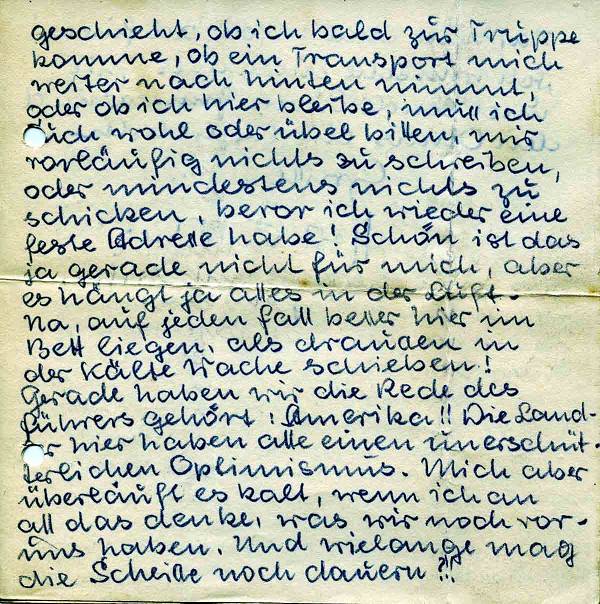 geschieht, ob ich bald zur Truppe
komme, ob ein Transport mich
weiter nach hinten nimmt,
oder ob ich hier bleibe, muß ich
Euch wohl oder übel bitten, mir
vorläufig nichts zu schreiben,
oder mindestens nichts zu
schicken, bevor ich wieder eine
feste Adresse habe! Schön ist das
ja gerade nicht für mich, aber
es hängt ja alles in der Luft.
Na, auf jeden Fall besser hier im
Bett liegen, als draußen in
der Kälte Wache schieben!
Gerade haben wir die Rede des
Führers gehört! Amerika!! Die Land-
ser hier haben alle einen unerschüt-
terlichen Optimismus. Mich aber
überläuft es kalt, wenn ich an
all das denke, was wir noch vor-
uns haben. Und wielange mag
die Scheiße noch dauern?!!